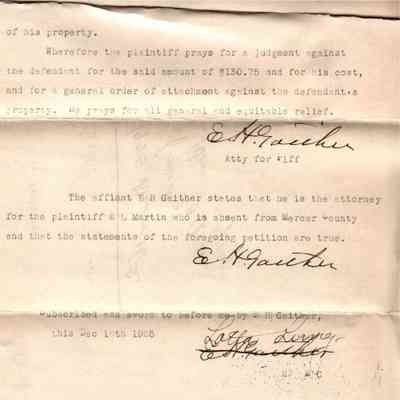 of his property.
Wherefore the plaintiff prays for a judgment against
the defendant for the said amount of $130.75 and for his cost,
and for a general order of attachment against the defendant,s
property. He prays for all general and equitable relief.
E H Gaither
Atty for Plff
The affiant E H Gaither states that he is the attorney
for the plaintiff Martin who is absent from Mercer County
and that the statements of the foregoing petition are true.
E H Gaither
Subscribed and sworn to before me by E H Gaither,
this Dec
E H Gaither